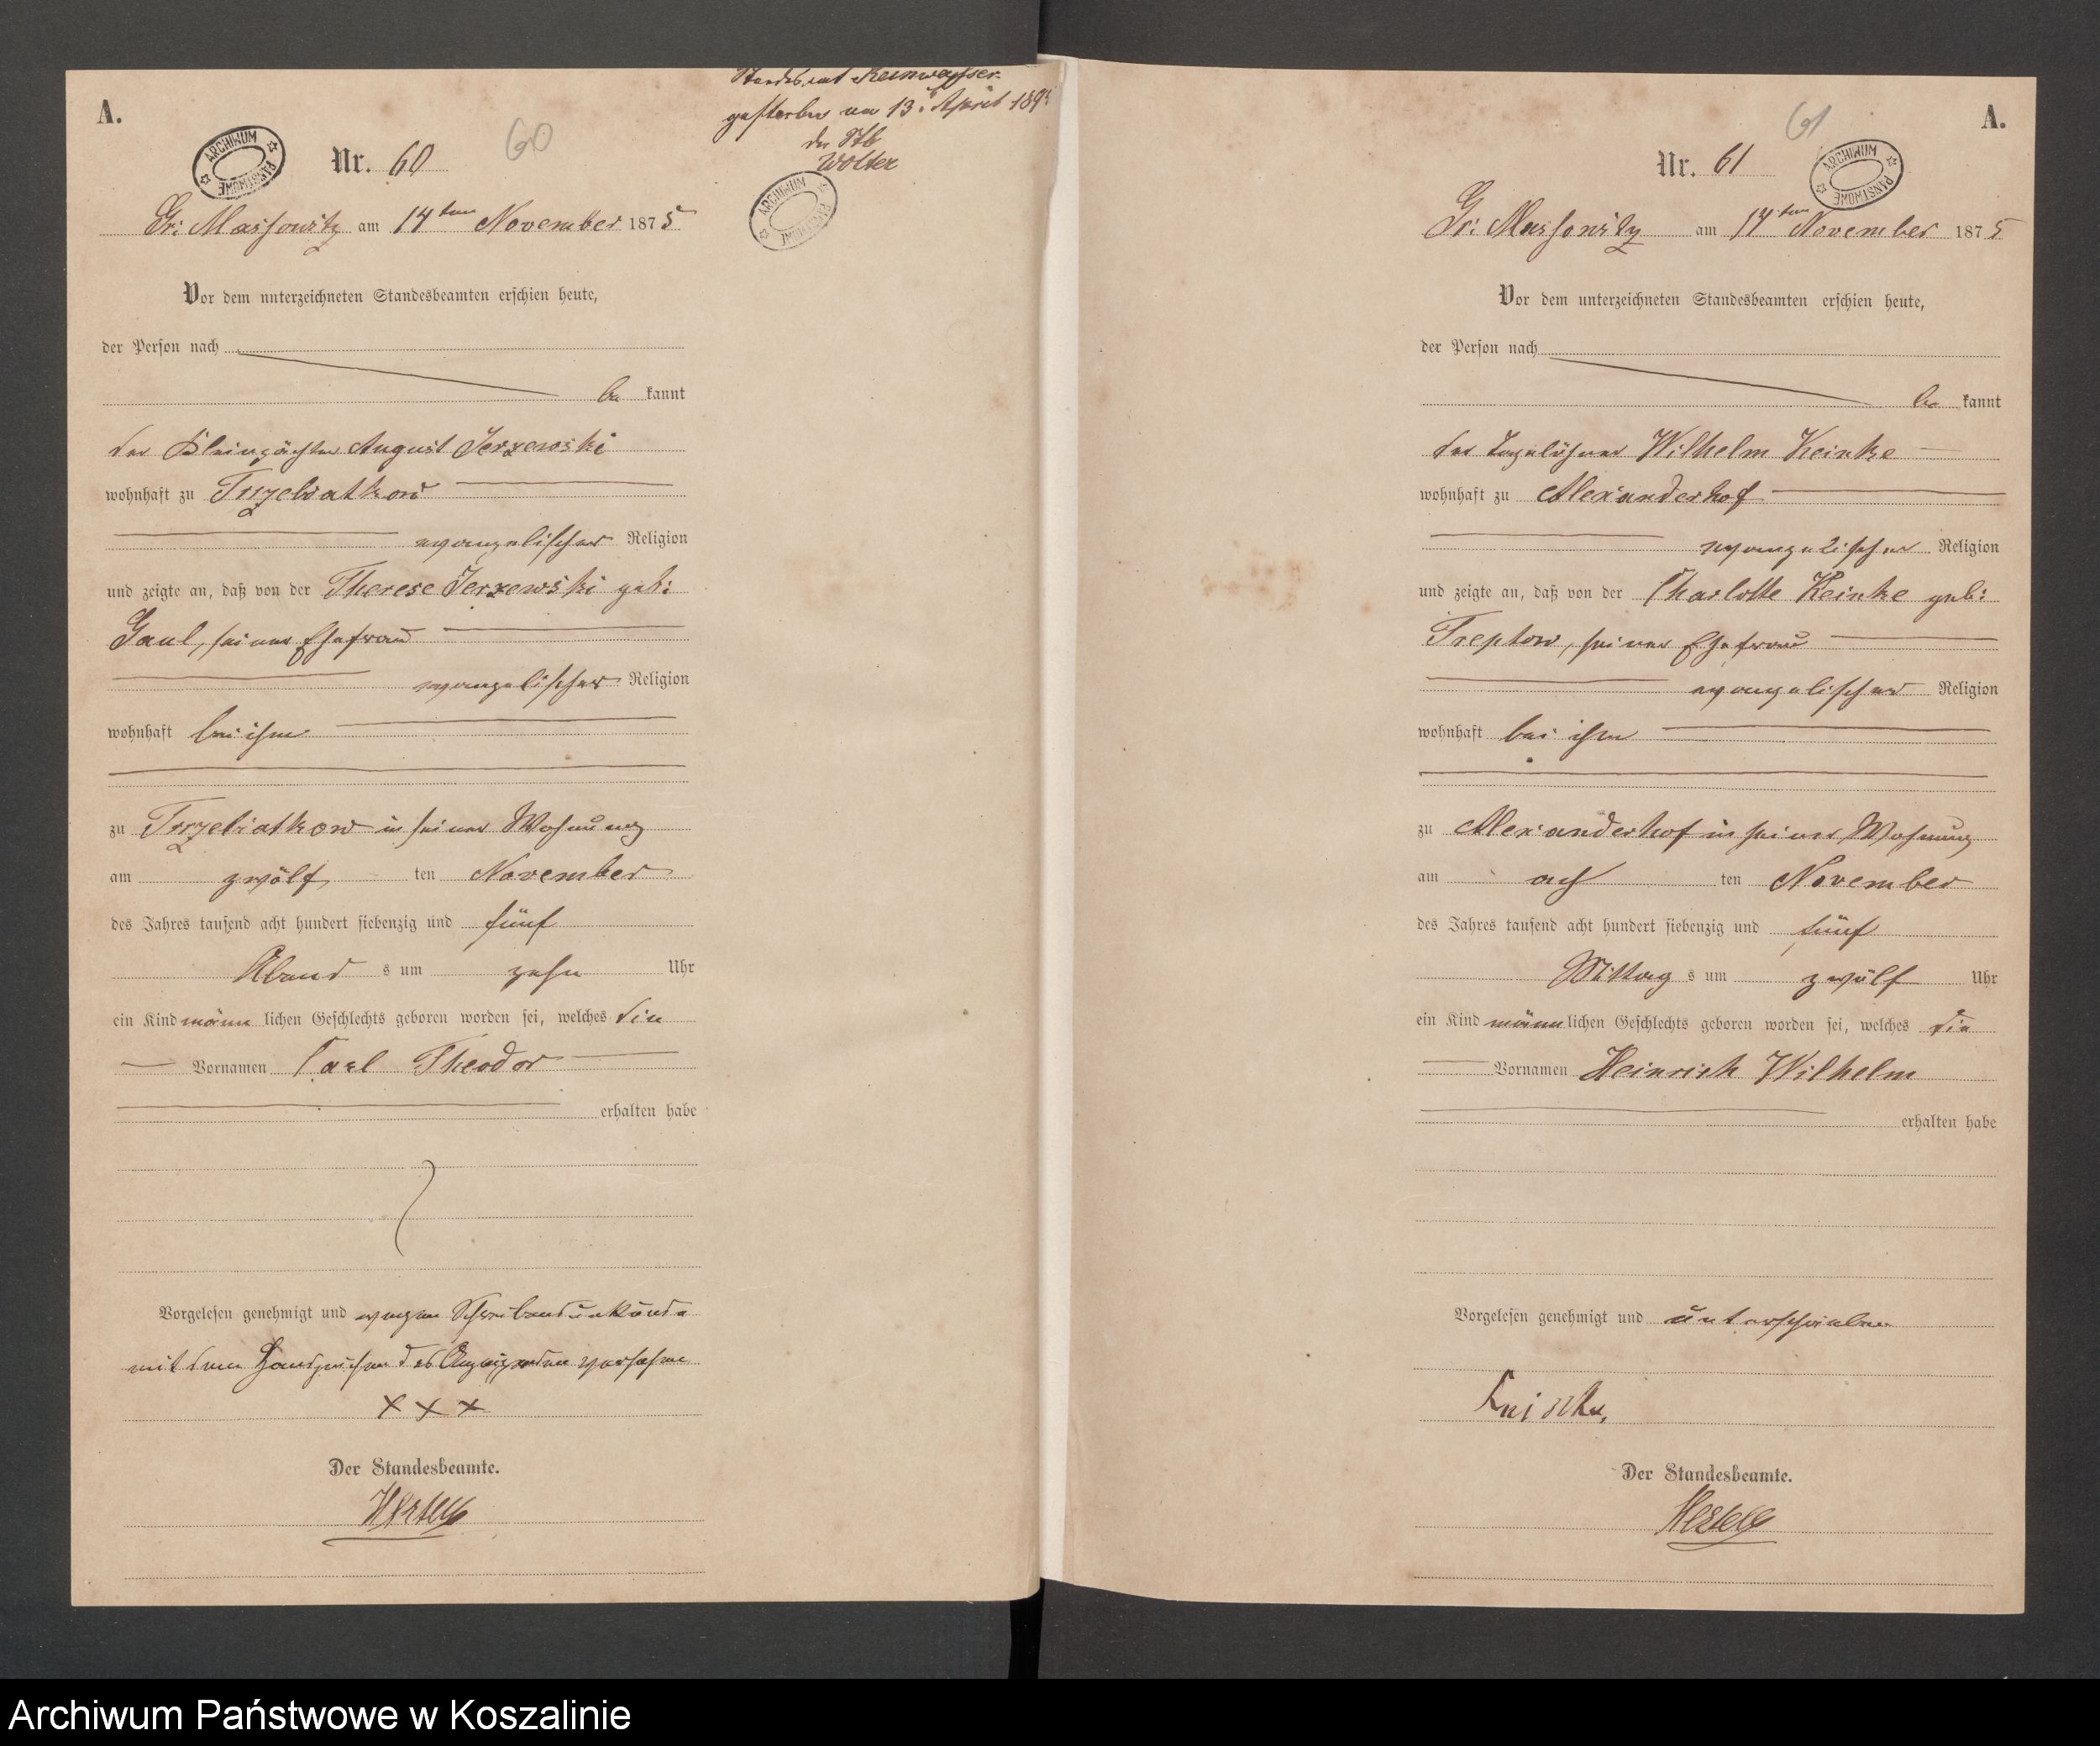 A.
ARCHIWUM PAŃSTWOWE
Nr. 60
60
Gr: Massowitz am 14ten November 1875
Vor dem unterzeichneten Standesbeamten erschien heute,
der Person nach
be kannt
der Kleinpächter August Jerzewski
wohnhaft zu Trzebiatkow
evangelischer Religion
und zeigte an, daß von der Therese Jerzewski geb:
Gaul, seiner Ehefrau
evangelischer Religion
wohnhaft bei ihm
zu Trzebiatkow in seiner Wohnung
am zwölf ten November
des Jahres tausend acht hundert siebenzig und fünf
Abend s um zehn Uhr
ein Kind männ lichen Geschlechts geboren worden sei, welches die
Vornamen Carl Theodor
erhalten habe
Vorgelesen genehmigt und wegen Schreibensunkunde
mit dem Handzeichen des Anzeigenden versehen
x x x
Der Standesbeamte.
Standesamt Reinwasser
gestorben am 13. April
der Stb
Wolter
ARCHIWUM PAŃSTWOWE
A.
61
Nr. 61
ARCHIWUM PAŃSTWOWE
Gr: Massowitz am 14ten November 1875
Vor dem unterzeichneten Standesbeamten erschien heute,
der Person nach
be kannt
der Tagelöhner Wilhelm Keinke
wohnhaft zu Alexanderhof
evangelischer Religion
und zeigte an, daß von der Charlotte Keinke geb:
Treptow, seiner Ehefrau
evangelischer Religion
wohnhaft bei ihm
zu Alexanderhof in seiner Wohnung
am ach ten November
des Jahres tausend acht hundert siebenzig und fünf
Mittag s um zwölf Uhr
ein Kind männ lichen Geschlechts geboren worden sei, welches die
Vornamen Heinrich Wilhelm
erhalten habe
Vorgelesen genehmigt und unterschrieben
Der Standesbeamte.
Archiwum Państwowe w Koszalinie